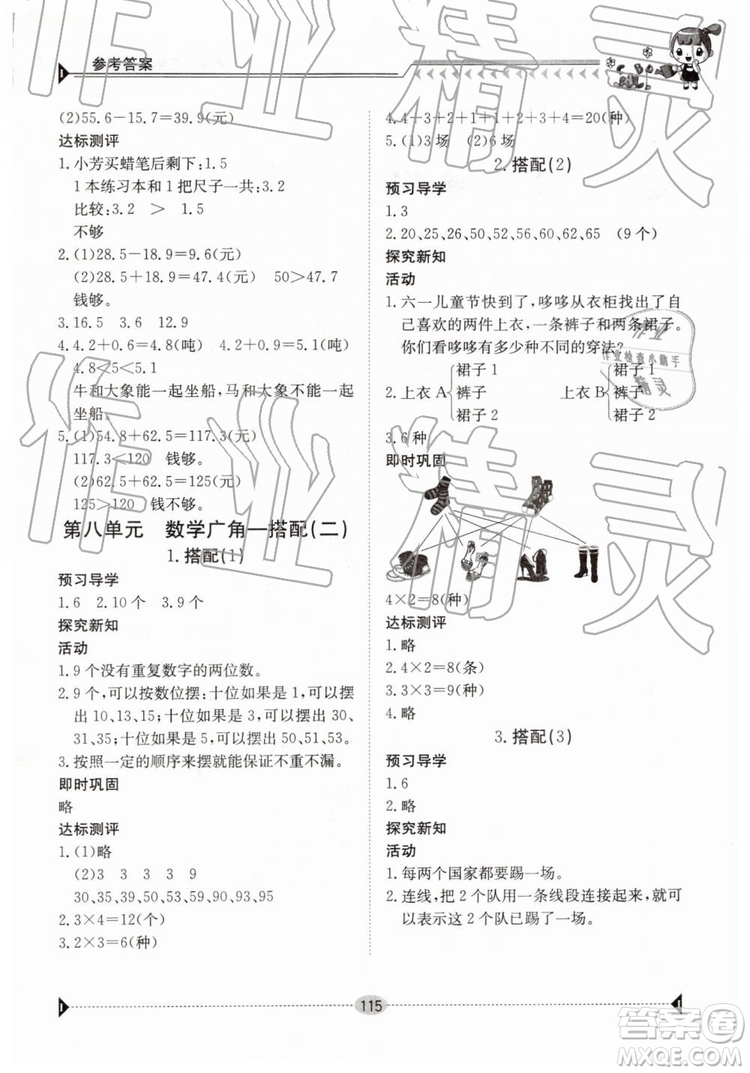 参考答案
(2)55.6-15.7=39.9(元)
达标测评
1.小芳买蜡笔后剩下:1.5
1本练习本和1把尺子一共:3.2
比较:3.2 > 1.5
不够
2.(1)28.5-18.9=9.6(元)
(2)28.5+18.9=47.4(元) 50>47.7
钱够。
3.16.5 3.6 12.9
4.4.2+0.6=4.8(吨) 4.2+0.9=5.1(吨)
4.8<5<5.1
牛和大象能一起坐船,马和大象不能一起
坐船。
5.(1)54.8+62.5=117.3(元)
117.3<120 钱够。
(2)62.5+62.5=125(元)
125>120 钱不够。
第八单元 数学广角—搭配(二)
1.搭配(1)
预习导学
1.6 2.10个 3.9个
探究新知
活动
1.9个没有重复数字的两位数。
2.9个,可以按数位摆:十位如果是1,可以摆
出10、13、15;十位如果是3,可以摆出30、
31、35;十位如果是5,可以摆出50、51、53。
3.按照一定的顺序来摆就能保证不重不漏。
即时巩固
略
达标测评
1.(1)略
(2)3 3 3 3 9
30、35、39、50、53、59、90、93、95
2.3×4=12(个)
3.2×3=6(种)
4.4+3+2+1+1+2+3+4=20(种)
5.(1)3场 (2)6场
2.搭配(2)
预习导学
1.3
2.20、25、26、50、52、56、60、62、65 (9个)
探究新知
活动
1.六一儿童节快到了,哆哆从衣柜找出了自
己喜欢的两件上衣,一条裤子和两条裙子。
你们看哆哆有多少种不同的穿法?
裙子1 裙子1
2.上衣A 裤子 上衣B 裤子
裙子2 裙子2
3.6种
即时巩固
4×2=8(种)
达标测评
1.略
2.4×2=8(条)
3.3×3=9(种)
4.略
3.搭配(3)
预习导学
1.6
2.略
探究新知
活动
1.每两个国家都要踢一场。
2.连线,把2个队用一条线段连接起来,就可
以表示这2个队已踢了一场。
115
作业精灵
作业精灵
作业检查小助手
精灵
答案圈
MXQE.COM